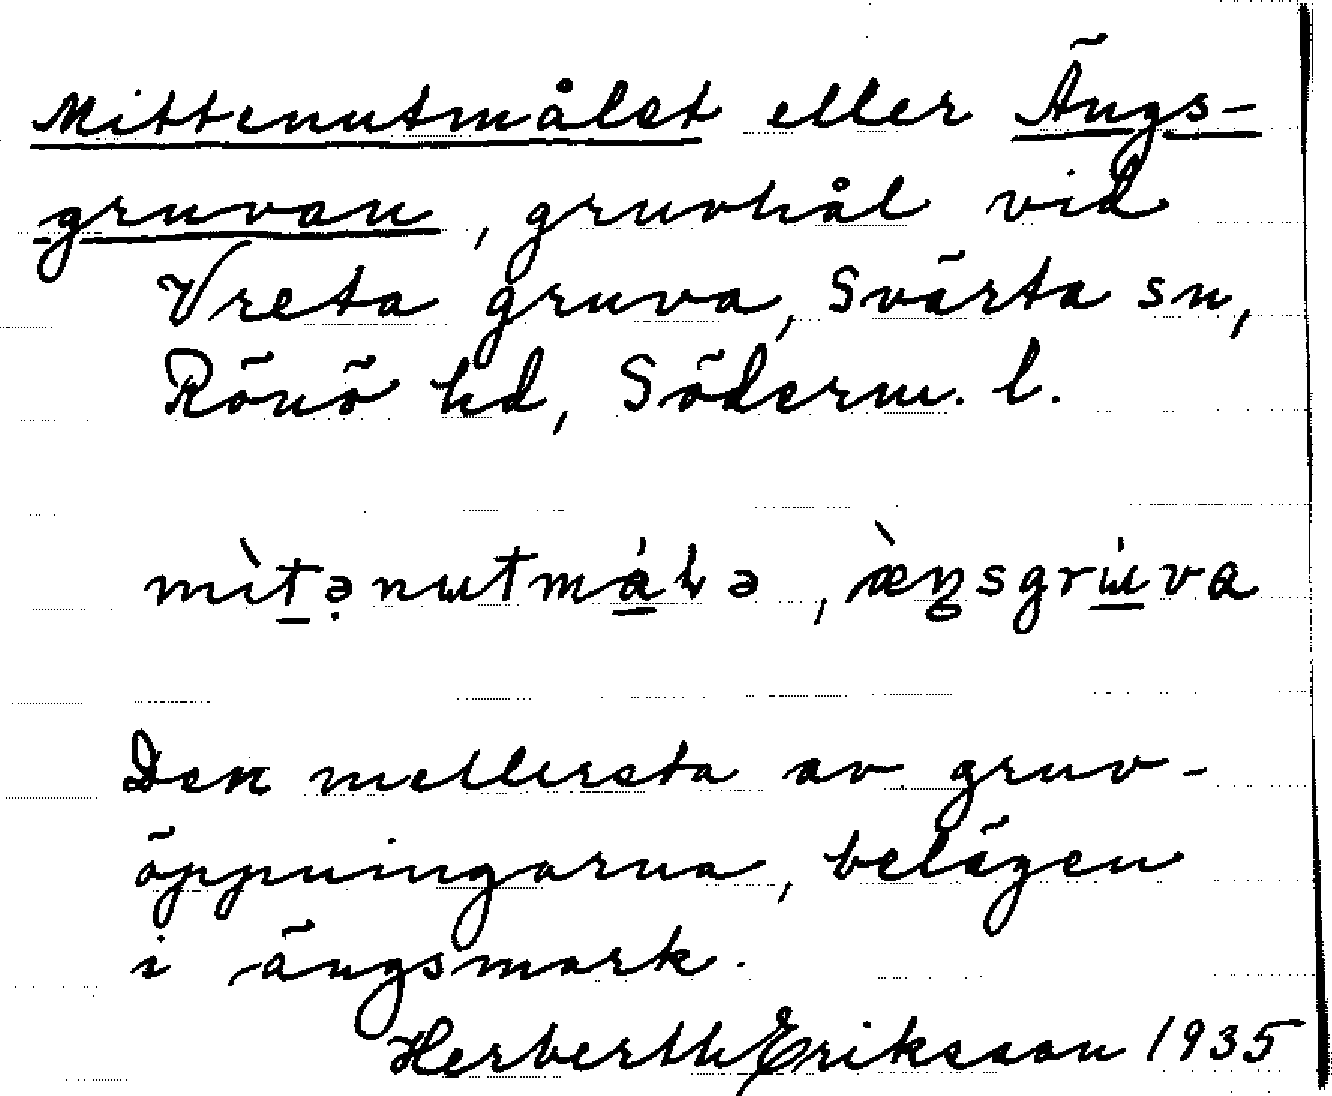 Mittenutmålet eller Ängs-
gruvan, gruvhål vid
Vreta gruva, Svärta sn,
Rönö hd, Söderm. l.
mìt̠ə̣nɯtmá̠ɫə, æ̀ŋsgrɯ̠́va
Den mellersta av gruv-
öppningarna, belägen
i ängsmark.
Herberth Eriksson 1935